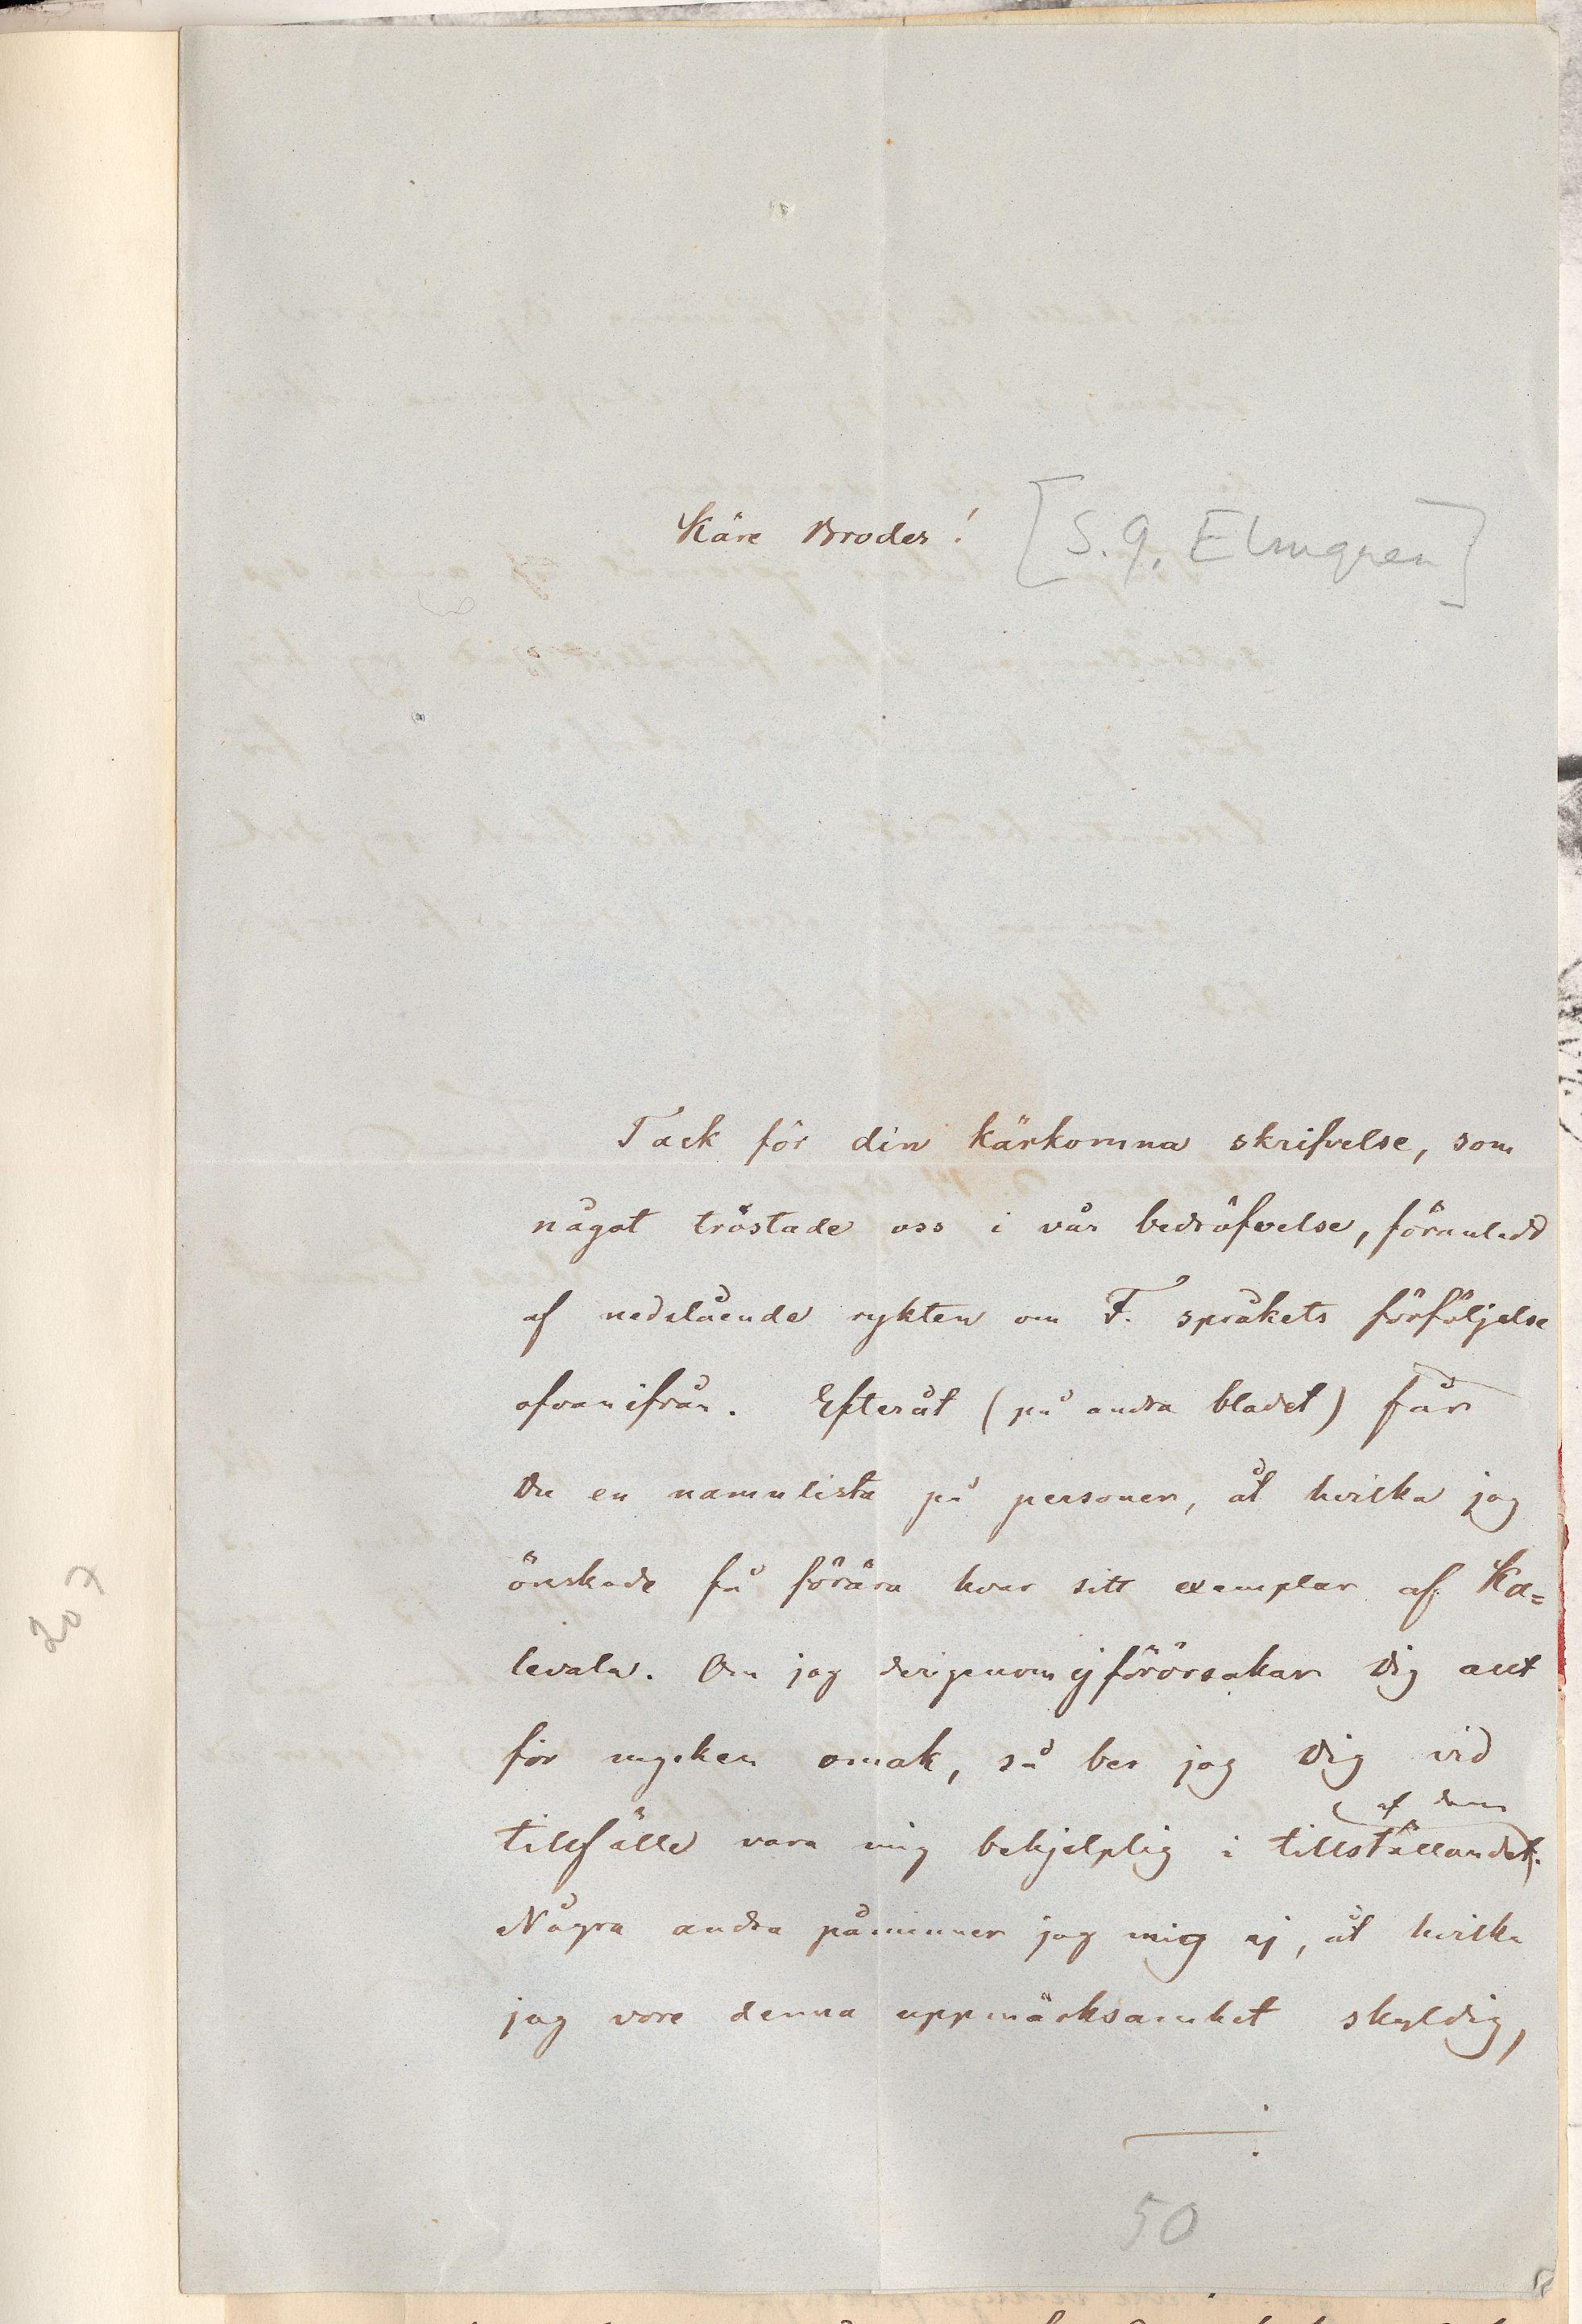 Käre Broder! [S. G. Elmgren]
Tack för din kärkomna skrifvelse, som
något tröstade oss i vår bedröfvelse, föranledd
af nedslående rykten om F. språkets förföljelse
ofvanifrån. Efteråt (på andra bladet) får
Du en namnlista på personer, åt hvilka jag
önskade få förära hvar sitt exemplar af Ka=
levala. Om jag derigenom ej förorsakar Dig allt
för mycken omak, så ber jag Dig vid
af dem
tillfälle vara mig behjelplig i tillställandet.
Några andra påminner jag mig ej, åt hvilka
jag vore denna uppmärksamhet skyldig,
207
50